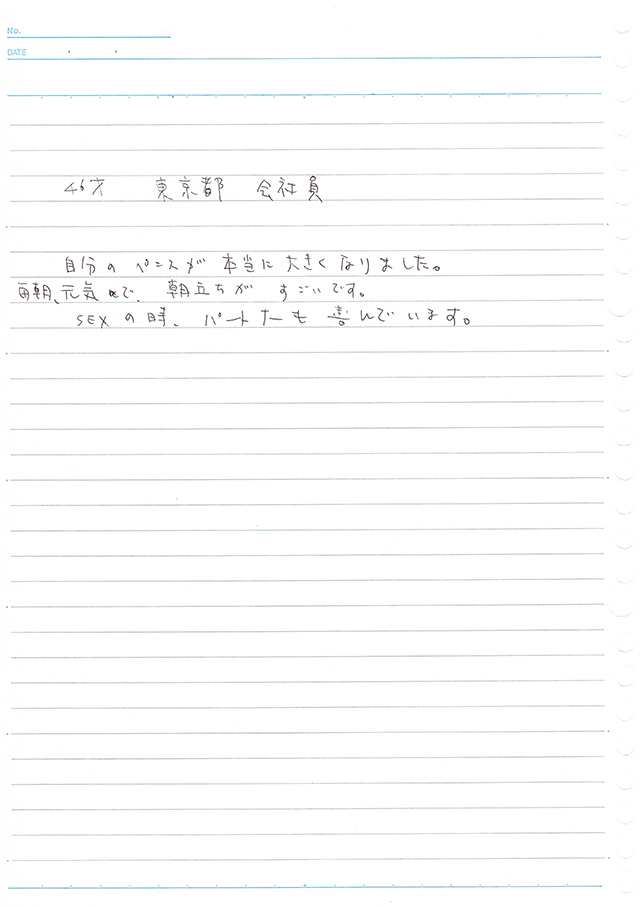 No.
DATE
46才 東京都 会社員
自分のペニスが本当に大きくなりました。
毎朝、元気で、朝立ちがすごいです。
SEXの時、パートナーも喜んでいます。